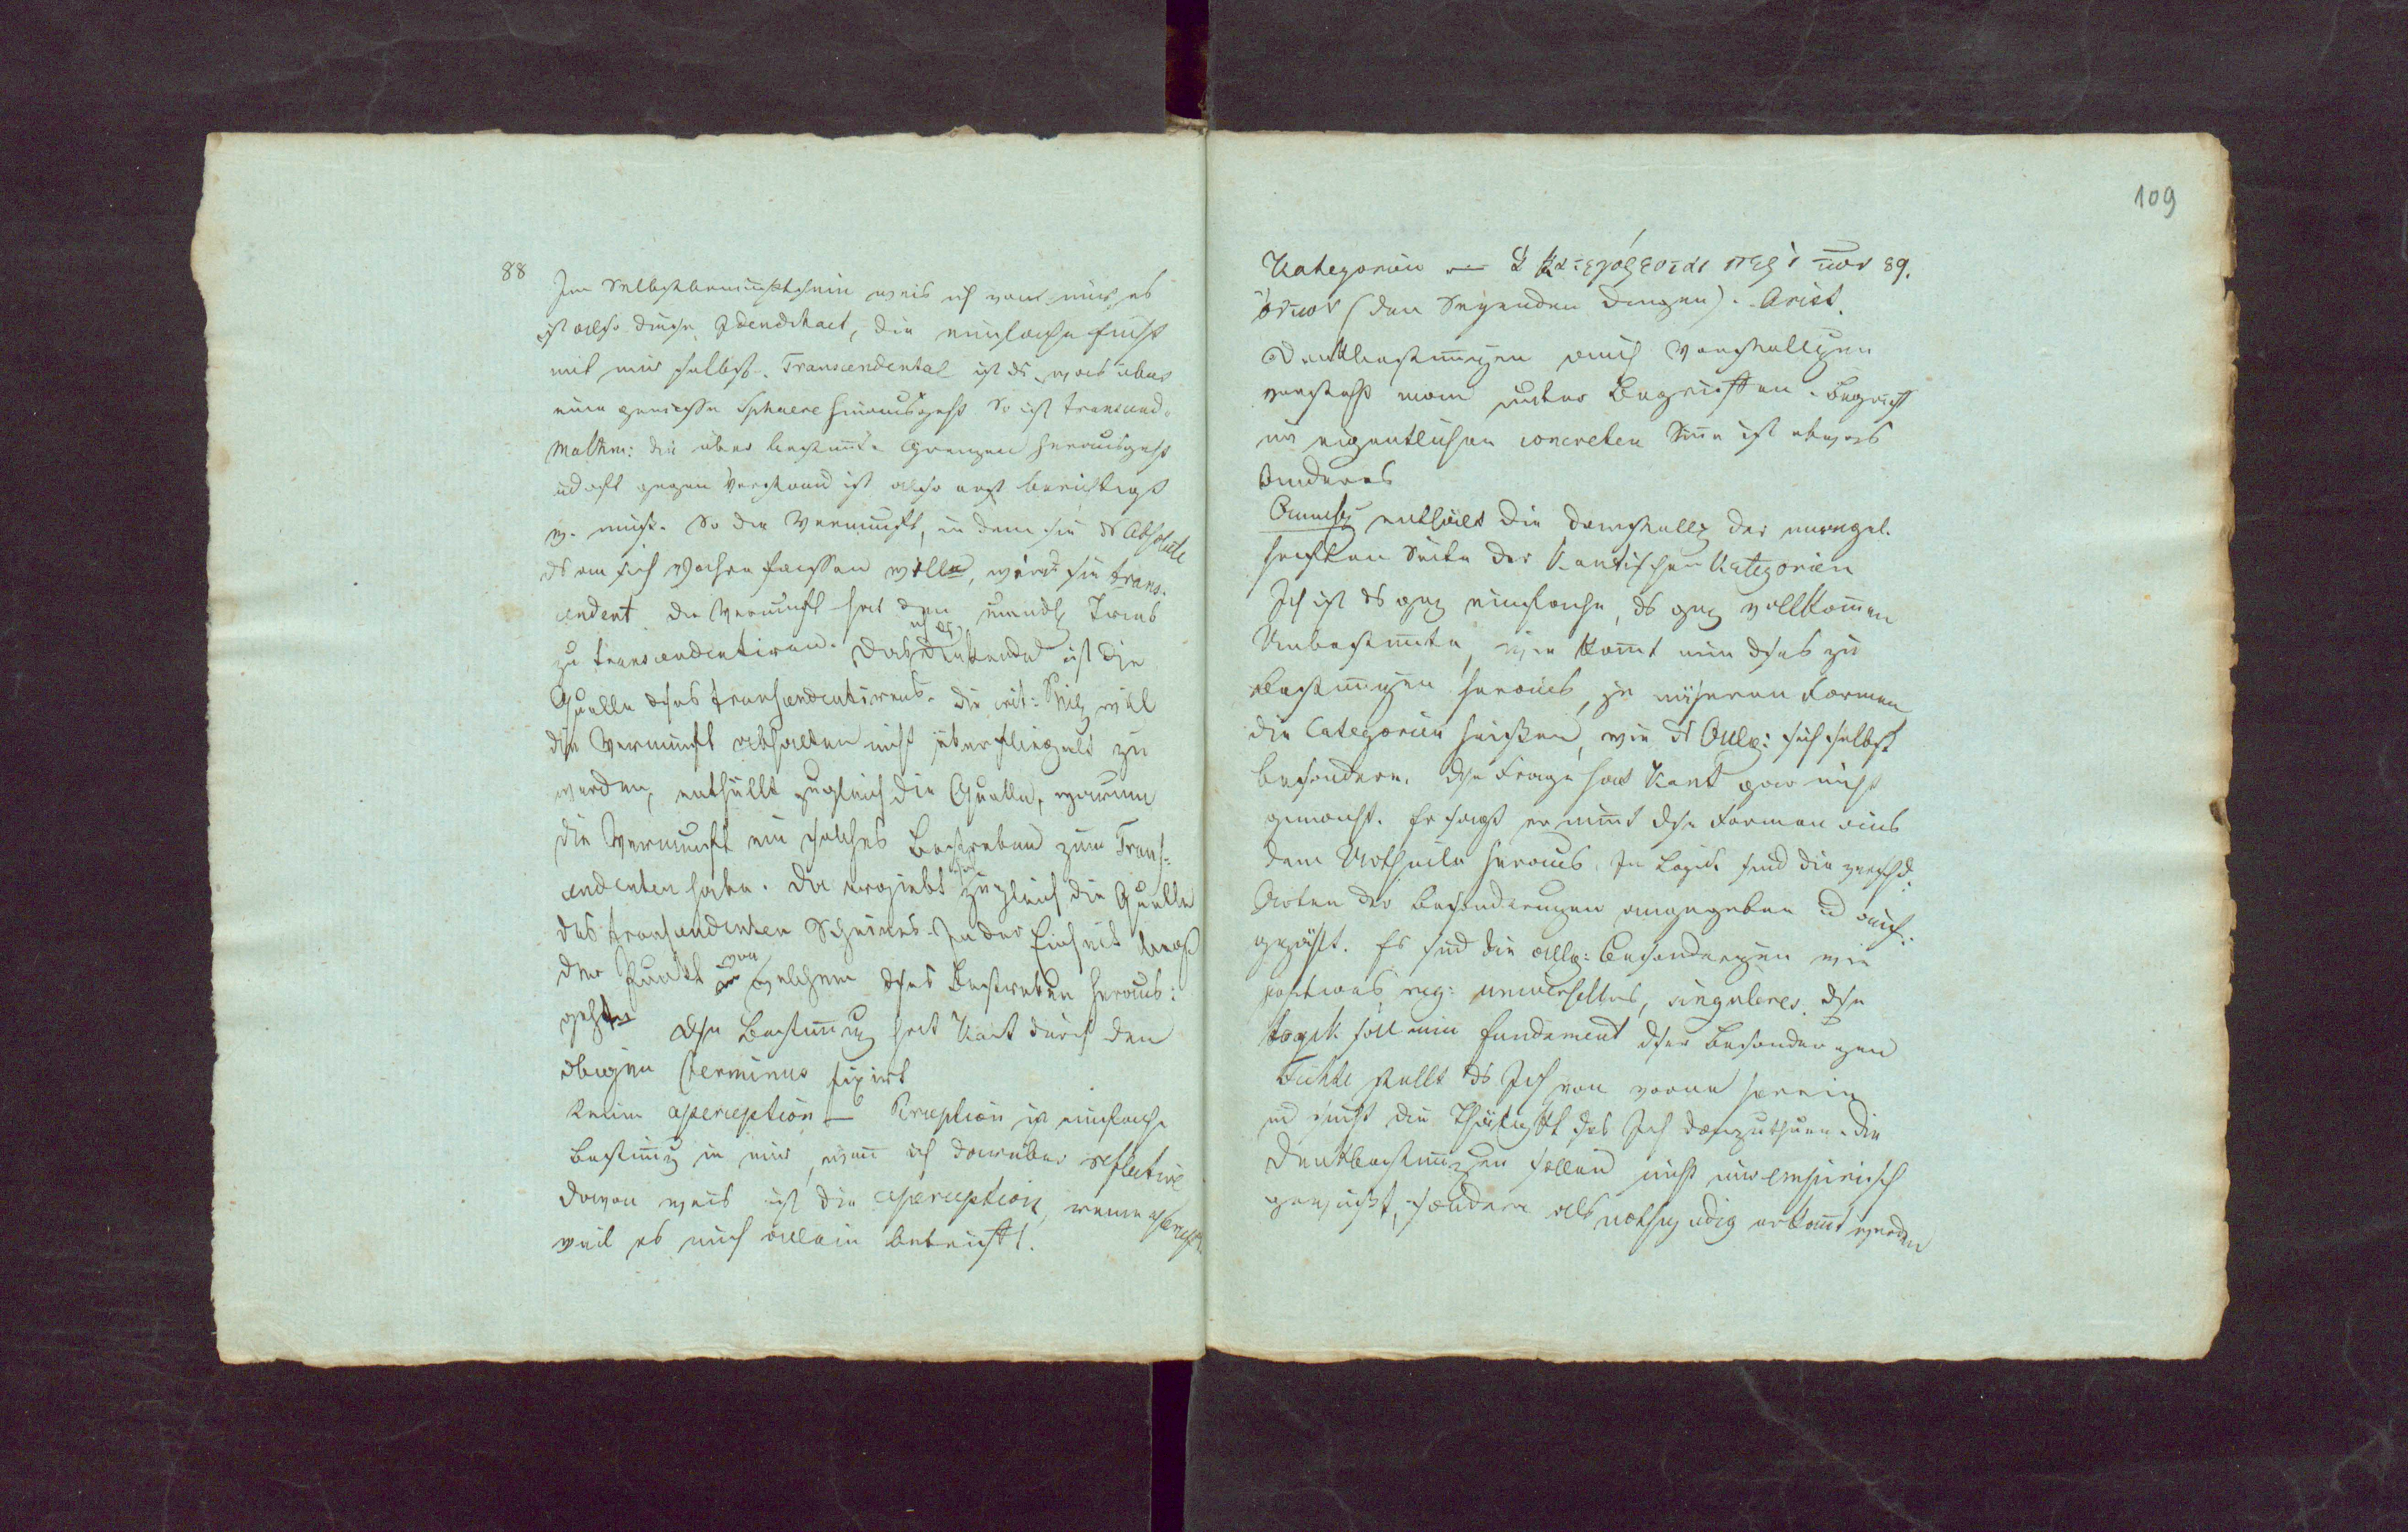 88
Im Selbstbewußtsein weis ich von mir, es
ist also diese Identitaet, die einfache Einht
mit mir selbst. Transcendental ist ds was über
eine gewisse Sphaere hinausgeht. So ist transcend.
Mathm: die über bestimte Grenzen herausgeht
ud oft gegen Verstand ist, also erst berichtigt
w. muß. So die Vernunft, in dem sie ds Absolute
ds an sich fassen wolle, würde sie trans-
cendent. Die Vernunft hat den Trieb
zu transcendentiren. Das denkende ist die
Quelle dses transcendentirens. Die crit: will
die Vernunft abhalten nicht überfliegend zu
werden, enthüllt zugleich die Quelle, warum
die Vernunft ein solches Bestreben zum Trans-
cendenten habe. Da ergiebt sich zugleich die Quelle
des transcendenten Scheines. In der Einheit liegt
der Punkt von welchem dses Bestreben heraus:
geht. Dse Bestimung hat Kant durch den
obigen terminus fixirt
Reine aperception — Perception ist einfache
Bestimg in mir, wenn ich darüber reflectire
davon weis ist die aperception, reine apercept.
weil es mich allein betrifft.
109
Kategorien — κατεγόρεσται περὶ των 89.
ὄντων (den Seyenden Dingen). Arist.
Denkbestimungen auch Vorstellungen
versteht man unter Begriffen. Begriff
im eigentlichen concreten Sinn ist etwas
Anderes
enthält die Darstellg der mangel-
haften Seite der Kantischen Kategorien
Ich ist ds gnz einfache, ds gnz vollkommen
Unbestimmte, wie komt nun dses zu
Bestimungen heraus, zu Formen
die Categorien heißen, wie ds Allg: sich selbst
besondere. Dse Frage hat Kant gar nicht
gemacht. Er sagt er nimt dse Formen aus
dem Urtheile heraus. In Logik sind die verschd.
Arten der Besonderungen angegeben ud auf-
gezählt. Es sind die allg: Besonderungen wie
positives, neg: universelles, singulares. Dse
Logik soll nun Fundament dser Besonderungen
Fichte stellt ds Ich von vorne herein
ud sucht die Thätigkt des Ich darzuthuen. Die
Denkbestimungen sollen nicht nur empirisch
gewußt, sondern als nothwendig erkant werden